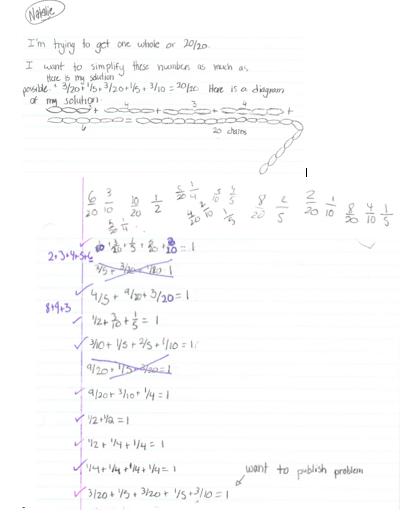 Natalie
I'm trying to get one whole or 20/20.
I want to simplify these numbers as much as
Here is my solution
possible. 3/20+1/5+3/20+1/5+3/10=20/20 Here is a diagram
of my solution.
+ 4 + 3 + 4 +
6 = 20 chains
6/20 3/10 10/20 1/2 5/20 1/4 8/20 2/5 2/20 1/10 8/20 4/10 1/5
4/20 2/10 1/5
2+3+4+5+6
4/5 + 9/20+3/20=1
8+9+3
1/2+3/10+1/5=1
3/10+1/5+2/5+1/10=1
9/20+1/5+3/20=1
9/20+3/10+1/4=1
1/2+1/2=1
1/2+1/4+1/4=1
1/4+1/4+1/4+1/4=1
want to publish problem
3/20+1/5+3/20+1/5+3/10=1